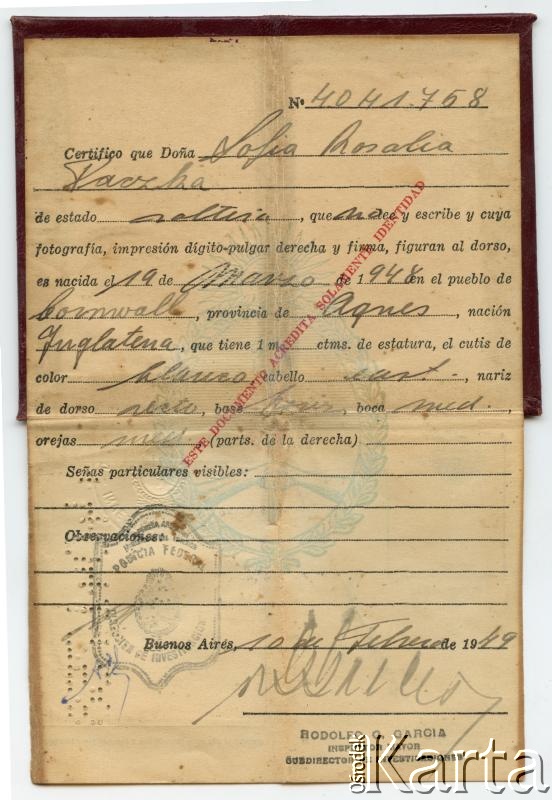 Nº 4041.758
Certifico que Doña Sofia Rosalia
Kaczka
de estado soltera, que no lee y escribe y cuya
fotografía, impresión dígito-pulgar derecha y firma, figuran al dorso,
es nacida el 19 de Marzo de 1948 en el pueblo de
Cornwall, provincia de Agnes, nación
Inglaterra, que tiene 1 m. ctms. de estatura, el cutis de
color blanco cabello cast., nariz
de dorso recto, base boca med.,
orejas med. (parts. de la derecha)
ESTE DOCUMENTO ACREDITA SOLAMENTE IDENTIDAD
Señas particulares visibles:
Observaciones:
POLICIA FEDERAL
DE INVESTIGACIONES
Buenos Aires, 10 de Febrero de 1949
RODOLFO C. GARCIA
INSPECTOR MAYOR
SUBDIRECTOR DE INVESTIGACIONES
ośrodek
Karta